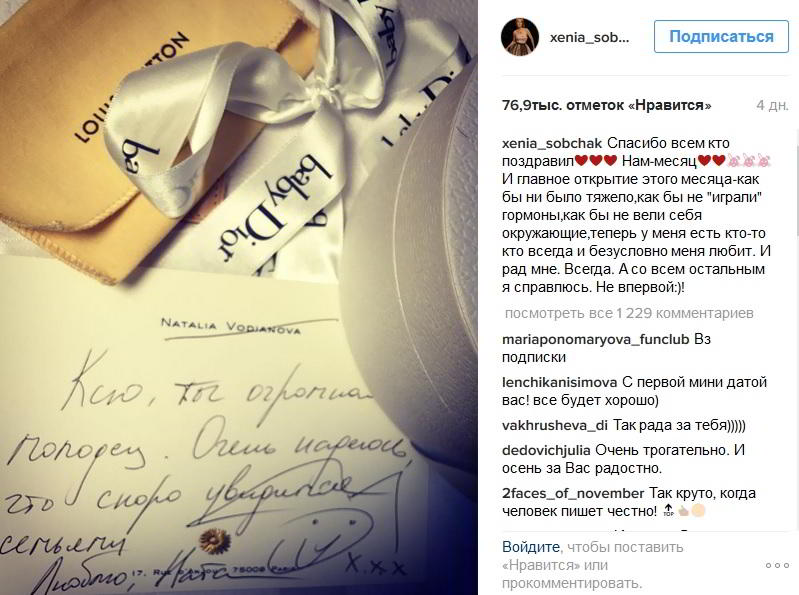 LOUIS VUITTON
ba
baby
baby Dior
NATALIA VODIANOVA
Ксю, ты огромная
молодец. Очень надеюсь,
что скоро увидимся
семьями
Люблю, Ната
17, RUE D'ANJOU 75008 PARIS
x.x.x
xenia_sob...
Подписаться
76,9тыс. отметок «Нравится»
4 дн.
xenia_sobchak Спасибо всем кто
поздравил❤❤❤ Нам-месяц❤❤🐰🐰🐰
И главное открытие этого месяца-как
бы ни было тяжело,как бы не "играли"
гормоны,как бы не вели себя
окружающие,теперь у меня есть кто-то
кто всегда и безусловно меня любит. И
рад мне. Всегда. А со всем остальным
я справлюсь. Не впервой:)!
посмотреть все 1 229 комментариев
mariaponomaryova_funclub Вз
подписки
lenchikanisimova С первой мини датой
вас! все будет хорошо)
vakhrusheva_di Так рада за тебя)))))
dedovichjulia Очень трогательно. И
осень за Вас радостно.
2faces_of_november Так круто, когда
человек пишет честно! 🔝👍🏼
Войдите, чтобы поставить
«Нравится» или
прокомментировать.